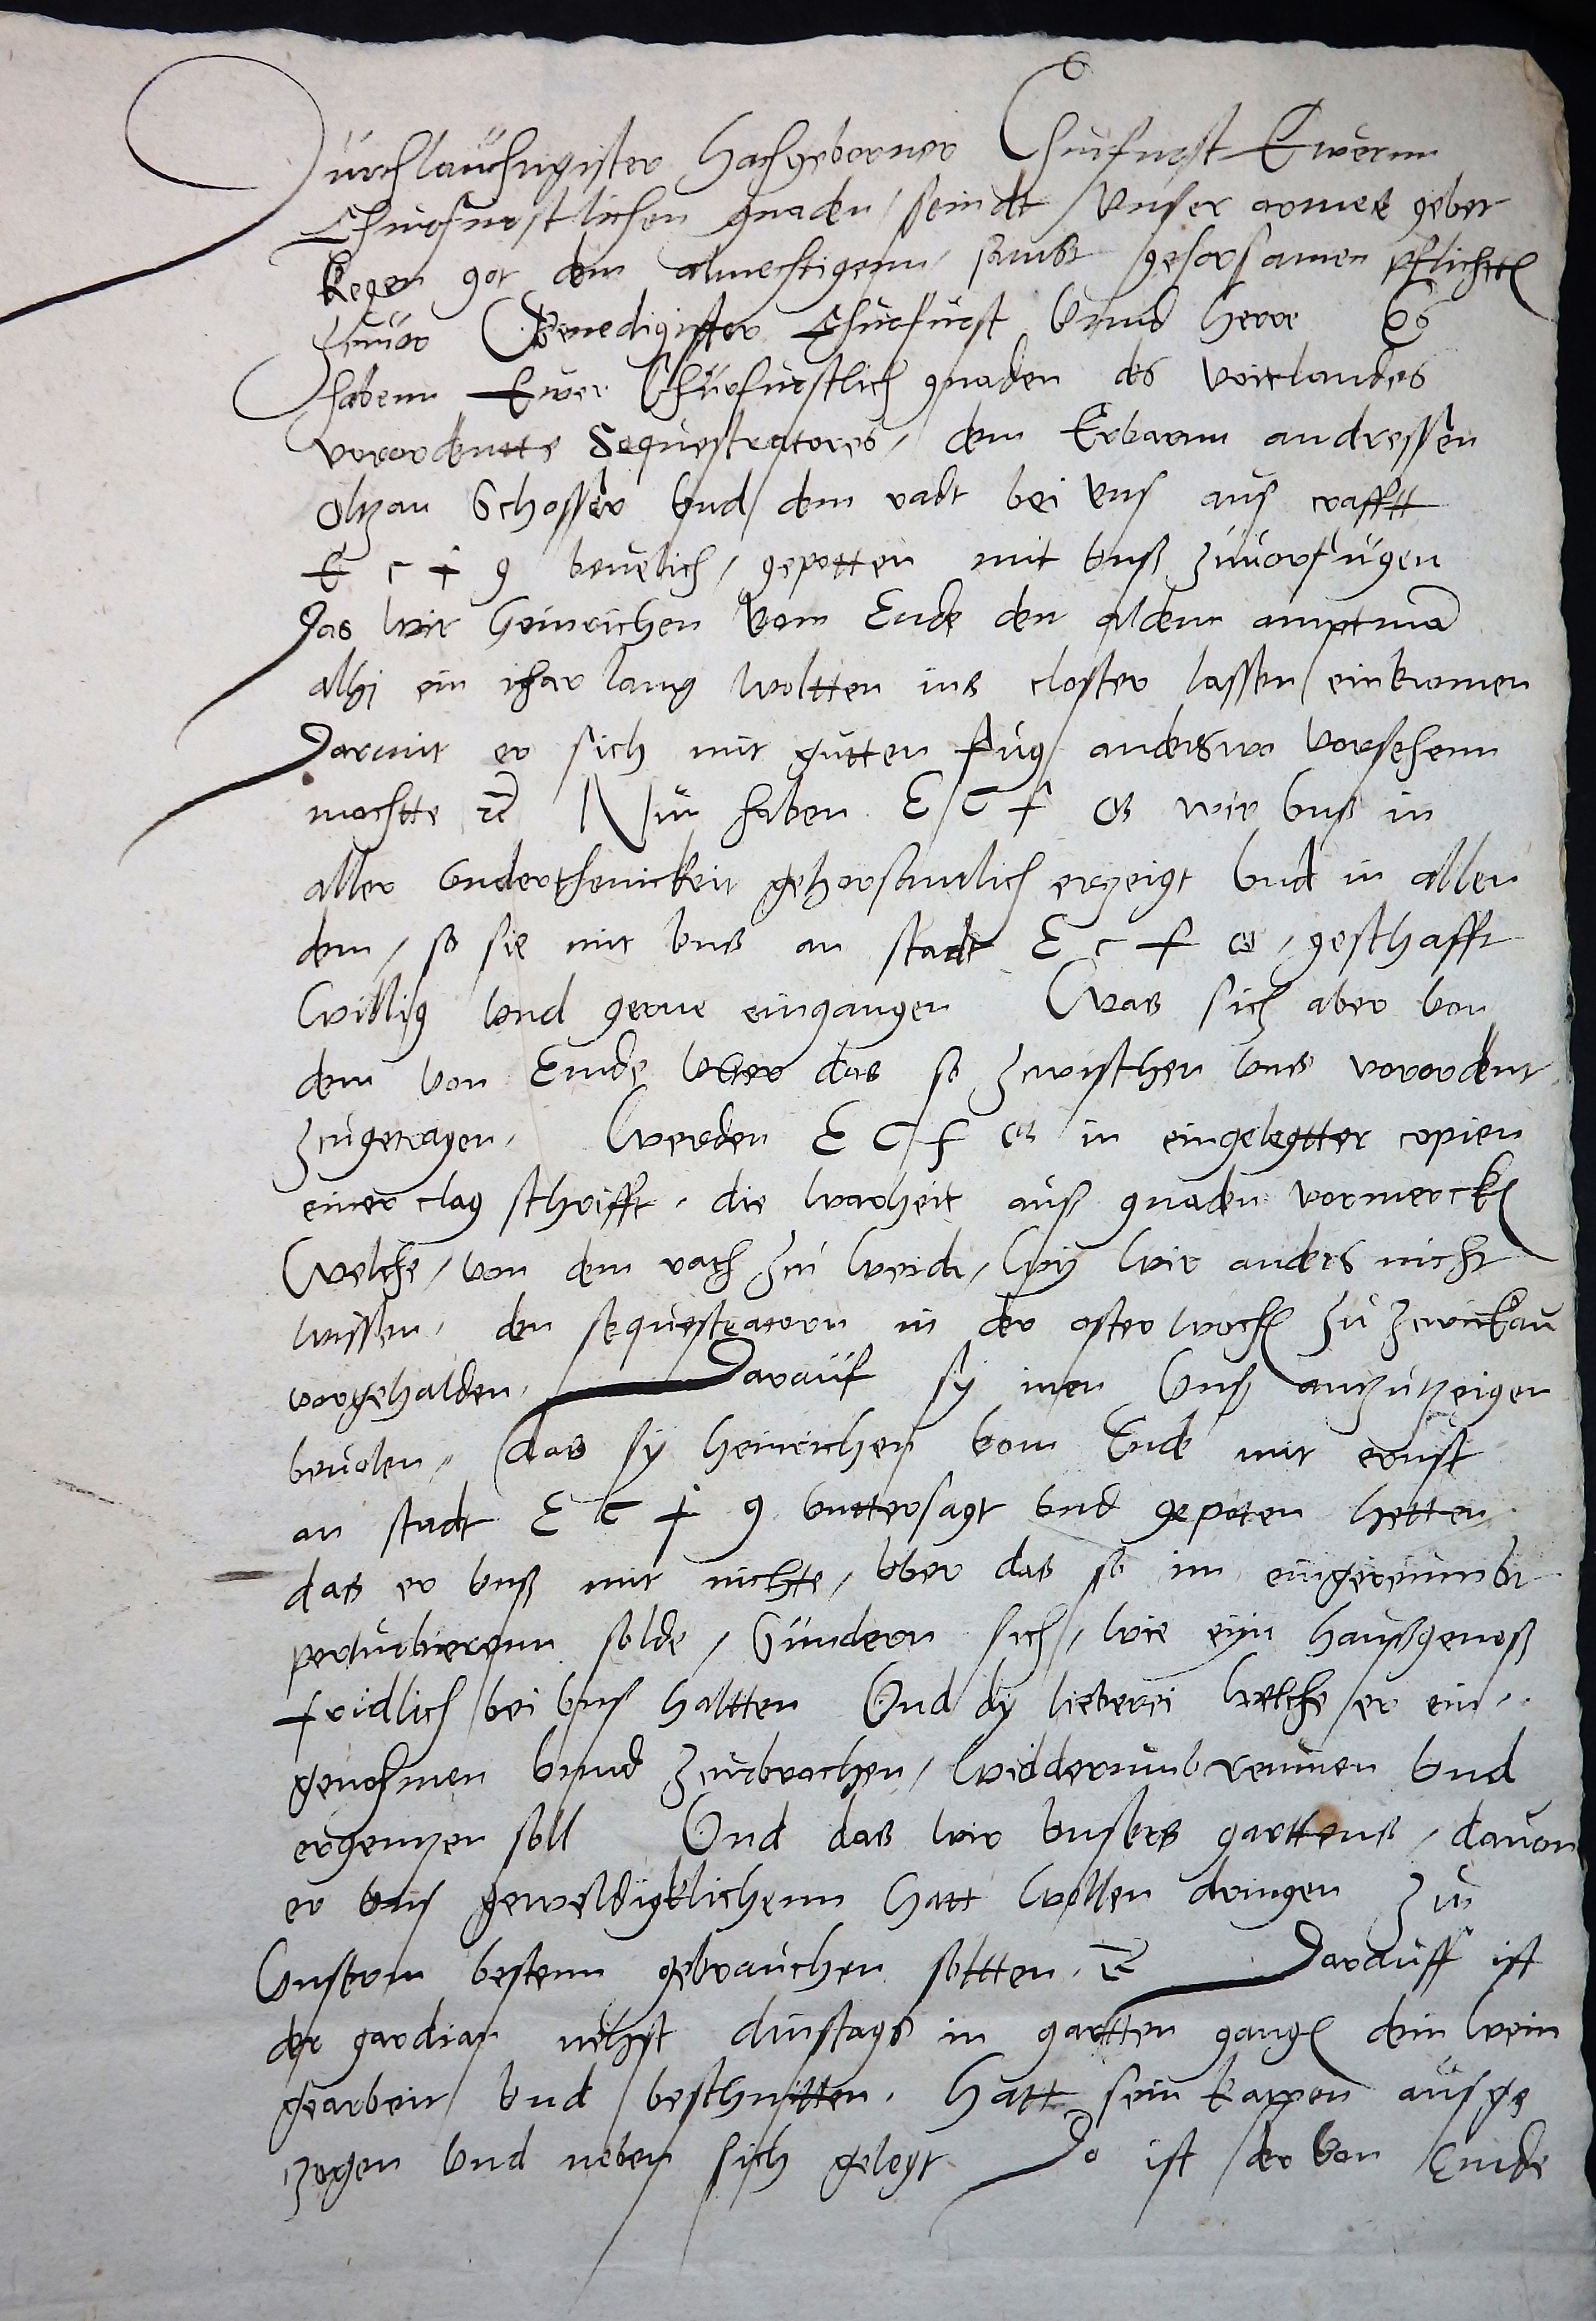 Durchlauchtigister Hochgeborner Churfurst Ewernn
Churfurstlichen gnaden / seindt unser armes gebet
kegen got dem almechtigenn, sambt gehorsamen pflichtten
zuuor Genedigister Churfurst unnd Herre Es
habenn Ewer Churfurstlich gnaden des voitlandes
vorordentte Sequestratores, dem Erbarnn andressen
Schosser und dem radt bei uns aus crafftt
E c f g beuelich, gepotten mit unß zuuorfugen
Das wir Heinrichen vom Ende den aldenn amptman
alhi ein ihar lang woltten ins closter lassen einkomen
Darmit er sich mit gutten fug anderswo vorsehenn
mochtte etc Nun haben E C f G wir unß in
aller underthenickeit gehorsamlich erzeigt und in allen
dem, so sie mit unß an stadt E c f G, geschafft
willig und gerne eingangen Was sich aber von
dem von Ende uber das so zcwischen uns vorordent
zcugetragen, Werden E C f G in eingelegtter copien
einer clag schrifft, die warheit auß gnaden vormercken
Welche, von dem rath zcu weida, wy wir anders nicht
wissen, den sequestratorn in der osterwochen zu zcwickau
vorgehalden, Darauf sy inen unß anzutzeigen
beuolen, das sy Heinrichen vom Ende mit ernst
an stadt E C f g unttersagt und gepoten hetten
das er unß mit nichte, uber das so im eingereumbt
perturbierenn solde, Sundern sich, wie eyn Haußgenoß
fridlich bei uns haltten Und dy lieberei welche er ein-
genohmen unnd zcurbrochen, widderumb reumen und
ergenzen soll Und das wir unsers garttens, dauon
er uns geweldigklichenn hatt wollen dringen zu
Unserm bestenn gebrauchen soltten, etc Darauff ist
der gardian nehst dinstags in gartten gangen dein wein
gearbeit und beschnitten, Hatt sein kappen ausge
zogen und neben sich gelegt Do ist der von Ende